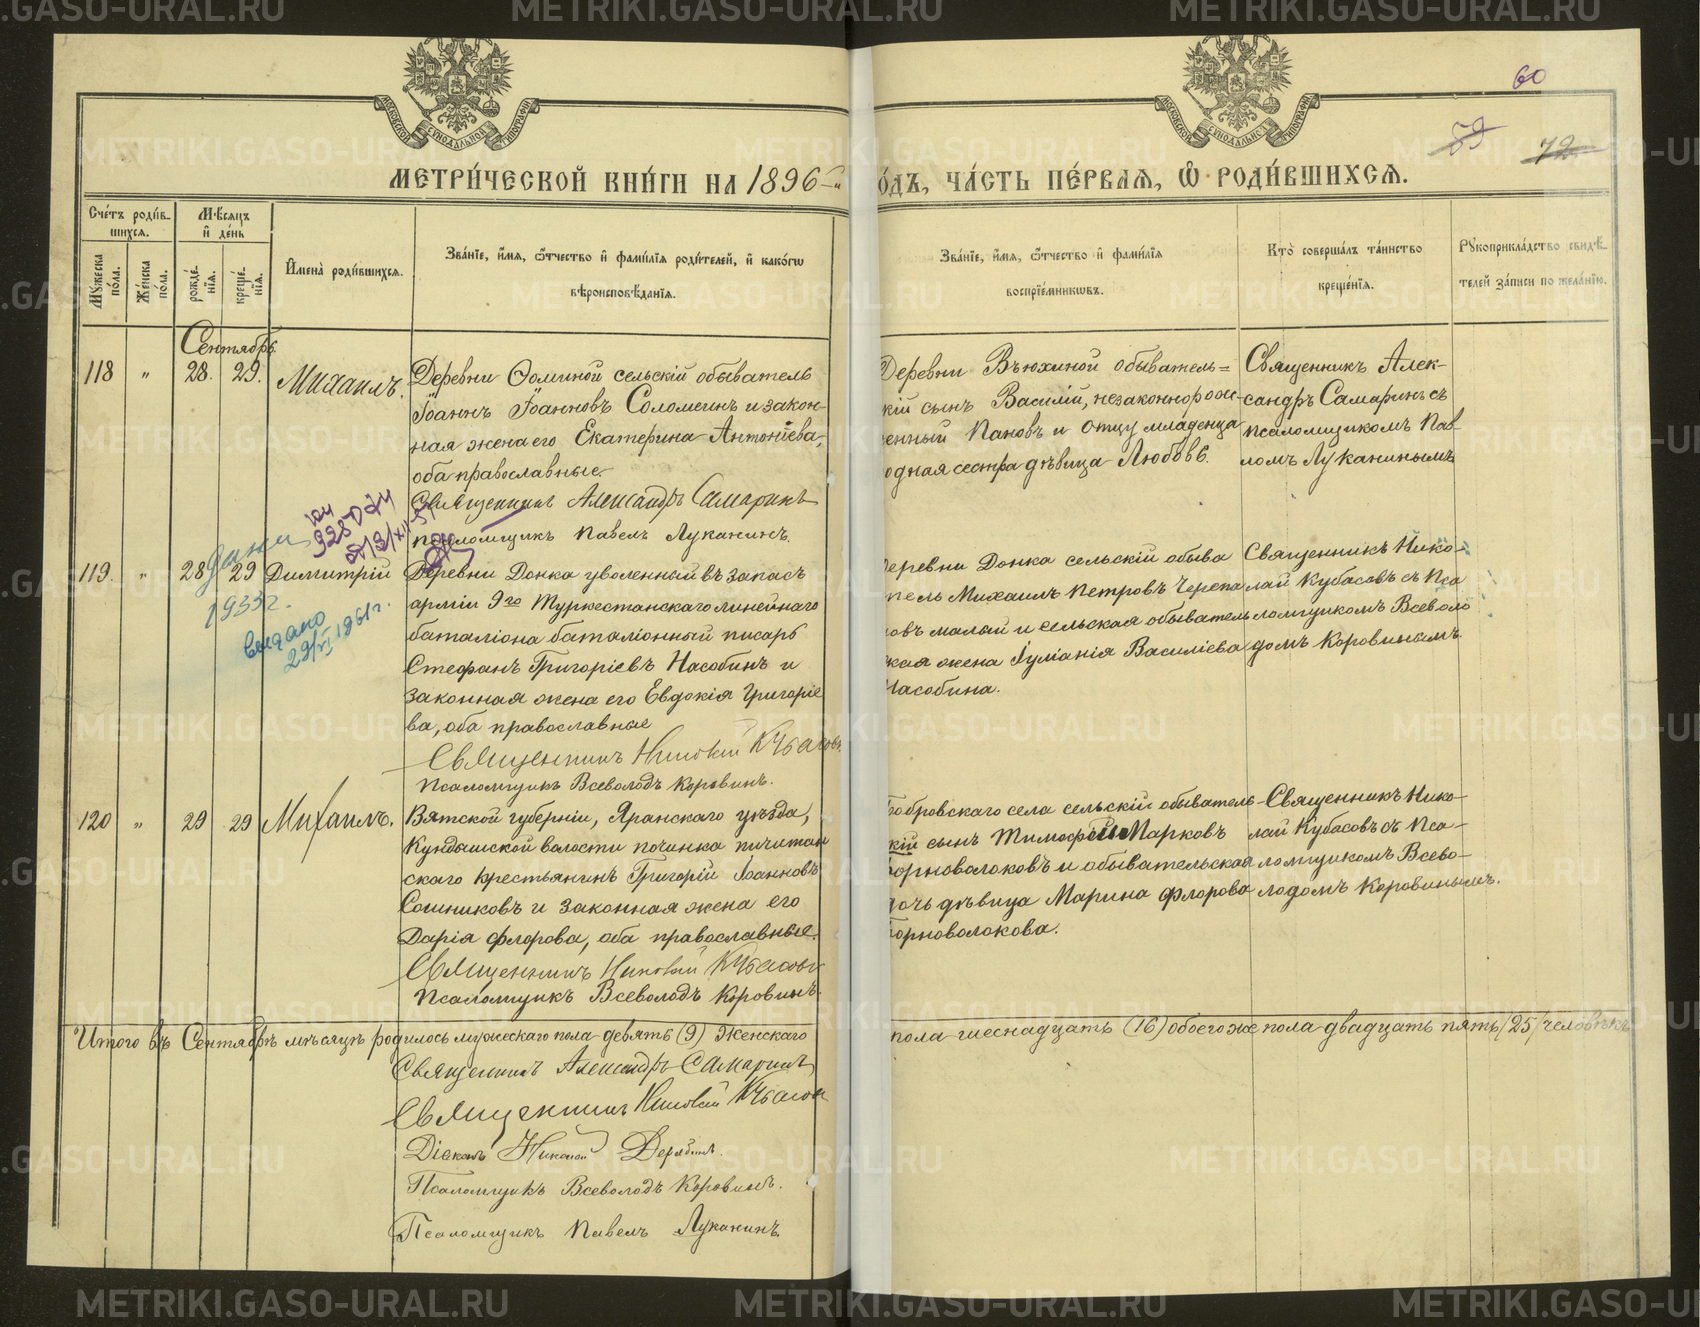 METRIKI.GASO-URAL.RU
МОСКОВСКОЙ СѴНОДАЛЬНОЙ ТИПОГРАФІИ
МОСКОВСКОЙ СѴНОДАЛЬНОЙ ТИПОГРАФІИ
60
59
72
МЕТРИ́ЧЕСКОЙ КНИ́ГИ НА 1896
О́ДЪ, ЧА́СТЬ ПЕ́РВАѦ, Ѿ РОДИ́ВШИХСѦ.
Сче́тъ роди́в-
шихсѧ.
Мѣ́сѧцъ
и҆ де́нь
Мꙋ́жеска по́ла.
Же́нска по́ла.
рожде́-
нїѧ.
креще́-
нїѧ.
И҆мена̀ роди́вшихсѧ.
Зва́нїе, и҆́мѧ, ѻ҆́тчество и҆ фами́лїѧ роди́телей, и҆ како́гѡ
вѣроисповѣ́данїѧ.
Зва́нїе, и҆́мѧ, ѻ҆́тчество и҆ фами́лїѧ
воспрїе́мникѡвъ.
Кто̀ соверша́лъ та́инство
креще́нїѧ.
Рꙋкоприкла́дство свидѣ́-
телей за́писи по жела́нїю.
Сентябрь
118 " 28. 29. Михаилъ.
Деревни Ѳоминой сельскій обыватель
Іоаннъ Іоанновъ Соломеинъ и закон-
ная жена его Екатерина Антоніева,
оба православные
Священникъ Александръ Самаринъ
псаломщикъ Павелъ Луканинъ.
Деревни Вьюхиной обыватель=
кій сынъ Василій, незаконнорож-
енный Пановъ и отцу младенца
одная сестра дѣвица Любовь.
Священникъ Алек-
сандръ Самаринъ съ
псаломщикомъ Пав-
ломъ Луканинымъ
119. " 28 29 Димитрій
1933г.
выдано
29/VI 1961г.
Деревни Донка уволенный въ запасъ
арміи 9го Туркестанскаго линейнаго
баталіона баталіонный писарь
Стефанъ Григоріевъ Насобинъ и
законная жена его Евдокія Григоріе
ва, оба православные
Священникъ Николай Кубасовъ
Псаломщикъ Всеволодъ Коровинъ.
Деревни Донка сельскій обыва
тель Михаилъ Петровъ Черепа
новъ малый и сельская обыватель
ская жена Іуліанія Василіева
Насобина.
Священникъ Нико-
лай Кубасовъ съ Пса
ломщикомъ Всеволо
домъ Коровинымъ.
120 " 29 29 Михаилъ.
Вятской губерніи, Яранскаго уѣзда,
Кундышской волости починка пичитан
скаго крестьянинъ Григорій Іоанновъ
Сошниковъ и законная жена его
Дарія Флорова, оба православные.
Священникъ Николай Кубасовъ
Псаломщикъ Всеволодъ Коровинъ.
Бобровскаго села сельскій обыватель-
кій сынъ Тимофей Марковъ
Черноволоковъ и обывательская
дочь дѣвица Марина Флорова
Черноволокова.
Священникъ Нико-
лай Кубасовъ съ Пса-
ломщикомъ Всево-
лодомъ Коровинымъ.
Итого въ Сентябрѣ мѣсяцѣ родилось мужескаго пола девять (9) женскаго
пола шеснадцать (16) обоего же пола двадцать пять /25/ человѣкъ
Священникъ Александръ Самаринъ
Священникъ Николай Кубасовъ
Діаконъ Николай Дерябинъ.
Псаломщикъ Всеволодъ Коровинъ.
Псаломщикъ Павелъ Луканинъ.